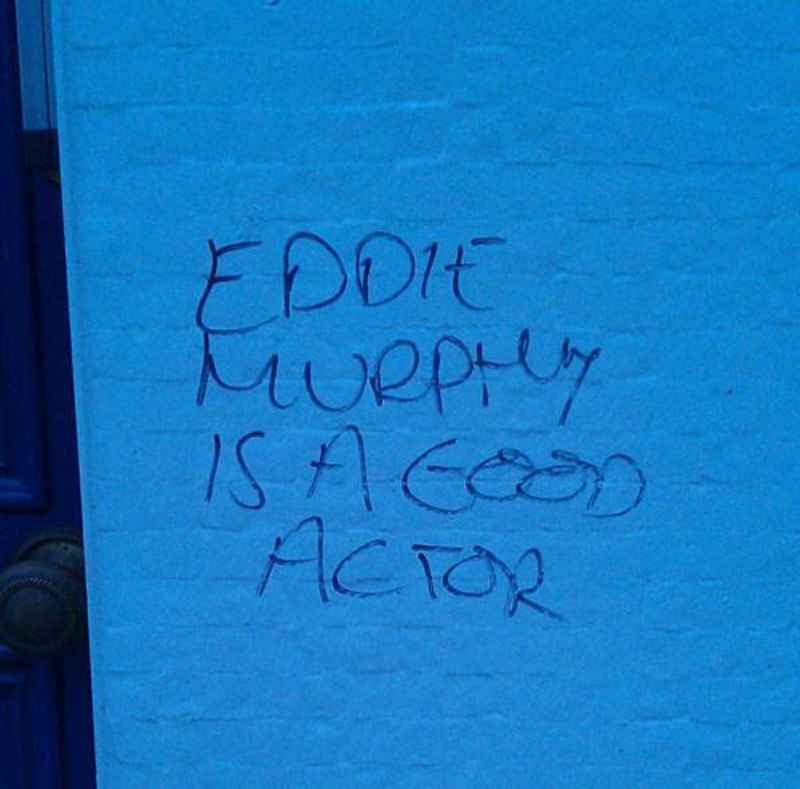 EDDIE
MURPHY
IS A GOOD
ACTOR